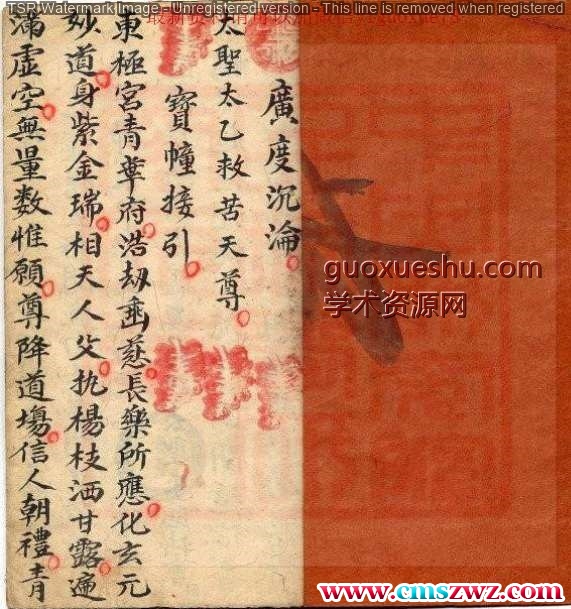 TSR Watermark Image - Unregistered version - This line is removed when registered
廣度沉淪
太聖太乙救苦天尊
寶幢接引
東極宮青華府浩劫垂慈長樂所應化玄元
妙道身紫金瑞相天人父执楊枝洒甘露遍
滿虛空無量数惟願尊降道場信人朝禮青
guoxueshu.com
学术资源网
www.cmszwz.com